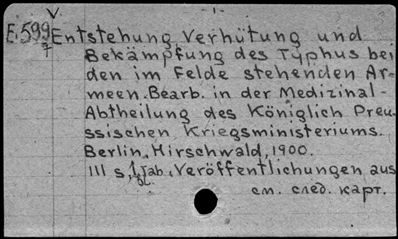 E.599
7
Entstehung Verhütung und
Bekämpfung des Typhus bei
den im Felde stehenden Ar-
meen. Bearb. in der Medizinal-
Abtheilung des Königlich Preu-
ssischen Kriegsministeriums.
Berlin, Hirschwald, 1900.
III s, 1 Tab. Veröffentlichungen aus
см. след. карт.